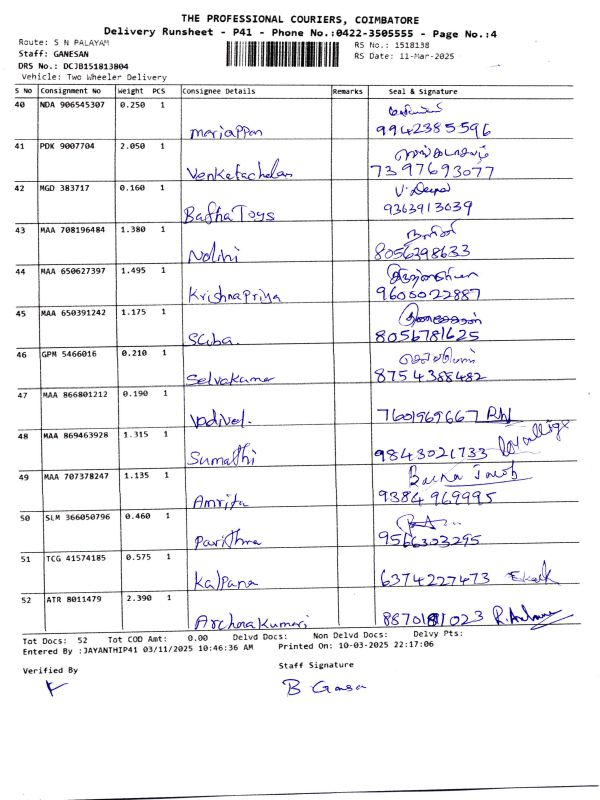 THE PROFESSIONAL COURIERS, COIMBATORE
Delivery Runsheet - P41 - Phone No.:0422-3505555 - Page No.:4
Route: S N PALAYAM
Staff: GANESAN
DRS No.: DCJB151813804
Vehicle: Two Wheeler Delivery
RS No.: 1518138
RS Date: 11-Mar-2025
S No Consignment No Weight PCS Consignee Details Remarks Seal & Signature
40 NDA 906545307 0.250 1
mariappan 9942385596
41 PDK 9007704 2.050 1
Venketachalam 7397693077
42 MGD 383717 0.160 1 V. Deepa
Bafna Toys 9363913039
43 MAA 708196484 1.380 1 நளினி
Nalini 8056398633
44 MAA 650627397 1.495 1
Krishnapriya 9600022887
45 MAA 650391242 1.175 1
Suba. 8056781625
46 GPM 5466016 0.210 1
Selvakumar 8754388482
47 MAA 866801212 0.190 1
Vadivel. 7601969667
48 MAA 869463928 1.315 1
Sumathi 9843021733
49 MAA 707378247 1.135 1 Jacob
Amrita 9384969995
50 SLM 366050796 0.460 1
Pavithra 9566303295
51 TCG 41574185 0.575 1
Kalpana 6374227473
52 ATR 8011479 2.390 1
Archana Kumari 8870181023
Tot Docs: 52 Tot COD Amt: 0.00 Delvd Docs: Non Delvd Docs: Delvy Pts:
Entered By :JAYANTHIP41 03/11/2025 10:46:36 AM Printed On: 10-03-2025 22:17:06
Verified By Staff Signature